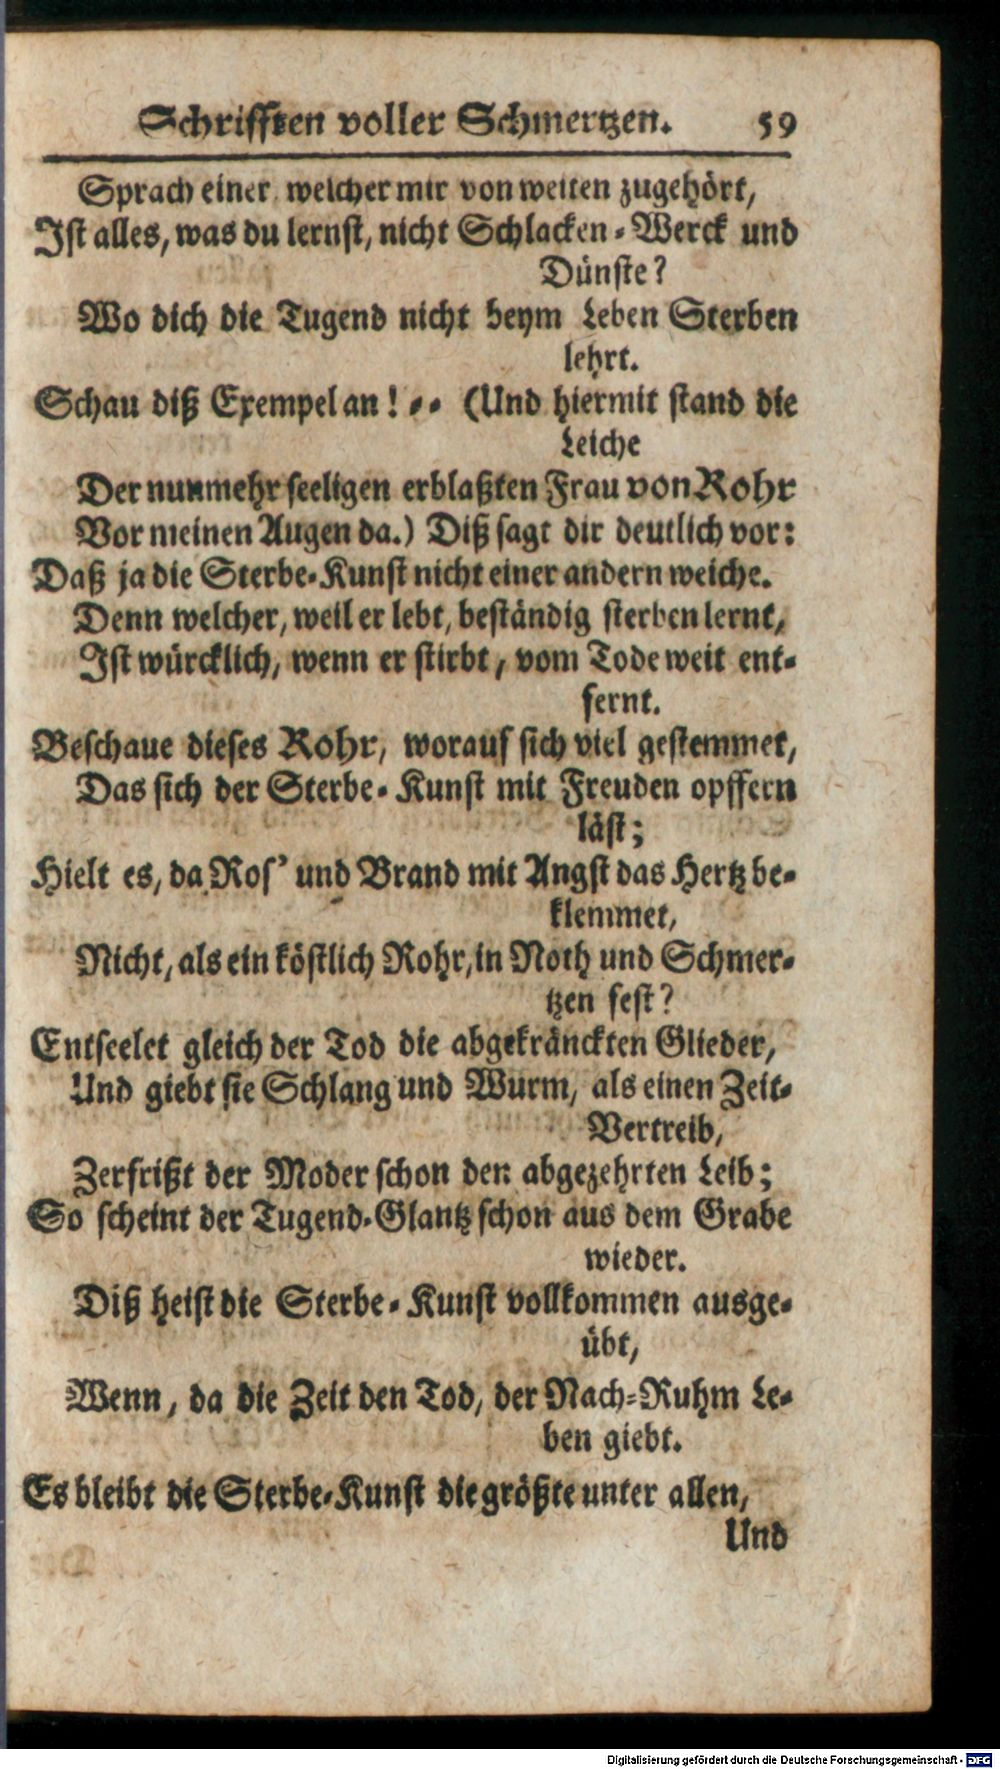 Schrifften voller Schmertzen. 59
Sprach einer welcher mir von weiten zugehört,
Ist alles, was du lernst, nicht Schlacken-Werck und
Dünste?
Wo dich die Tugend nicht beym Leben Sterben
lehrt.
Schau diß Exempel an! -- (Und hiermit stand die
Leiche
Der nunmehr seeligen erblaßten Frau von Rohr
Vor meinen Augen da.) Diß sagt dir deutlich vor:
Daß ja die Sterbe-Kunst nicht einer andern weiche.
Denn welcher, weil er lebt, beständig sterben lernt,
Ist würcklich, wenn er stirbt, vom Tode weit ent-
fernt.
Beschaue dieses Rohr, worauf sich viel gestemmet,
Das sich der Sterbe-Kunst mit Freuden opffern
läst;
Hielt es, da Ros' und Brand mit Angst das Hertz be-
klemmet,
Nicht, als ein köstlich Rohr, in Noth und Schmer-
tzen fest?
Entseelet gleich der Tod die abgekränckten Glieder,
Und giebt sie Schlang und Wurm, als einen Zeit-
Vertreib,
Zerfrißt der Moder schon den abgezehrten Leib;
So scheint der Tugend-Glantz schon aus dem Grabe
wieder.
Diß heist die Sterbe-Kunst vollkommen ausge-
übt,
Wenn, da die Zeit den Tod, der Nach-Ruhm Le-
ben giebt.
Es bleibt die Sterbe-Kunst die größte unter allen,
Und
Digitalisierung gefördert durch die Deutsche Forschungsgemeinschaft - DFG